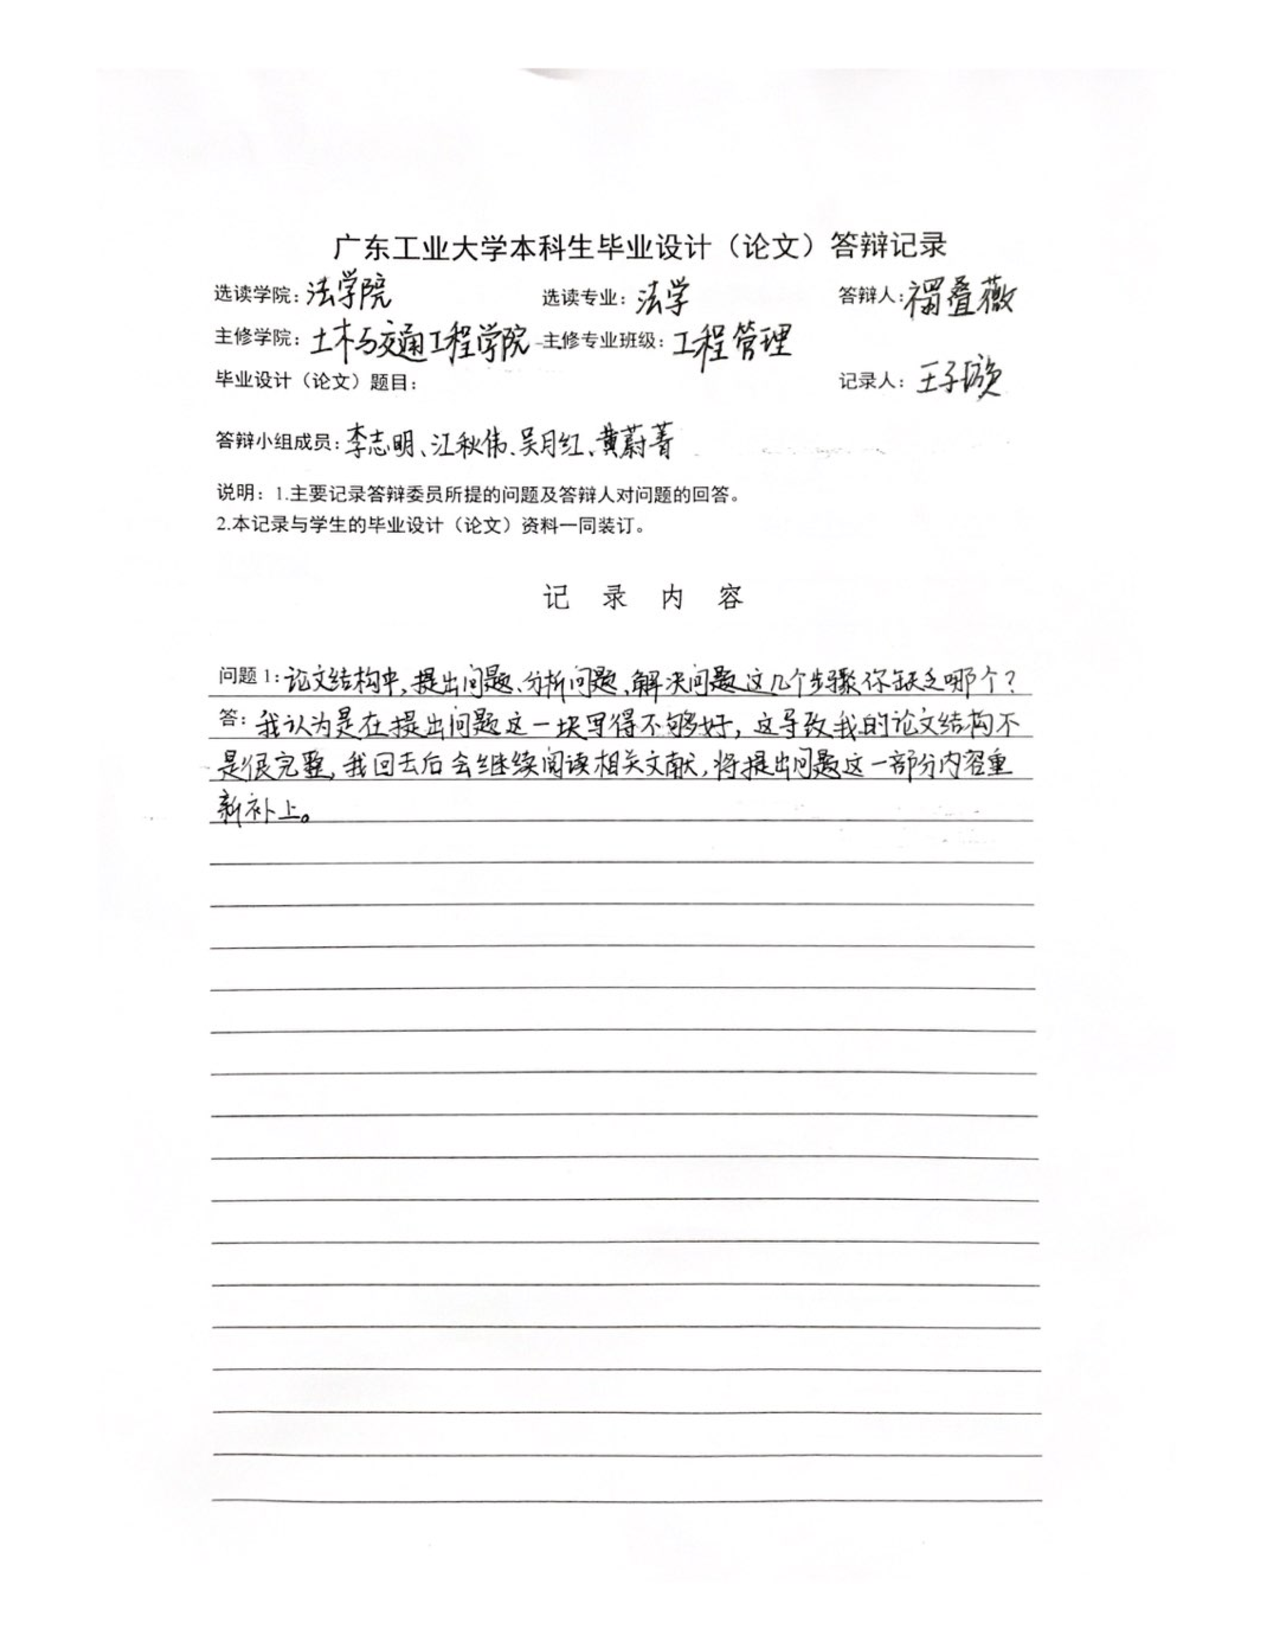 广东工业大学本科生毕业设计（论文）答辩记录
选读学院：法学院 选读专业：法学 答辩人：禤叠薇
主修学院：土木与交通工程学院 主修专业班级：工程管理
毕业设计（论文）题目： 记录人：王子璇
答辩小组成员：李志明、江秋伟、吴月红、黄蔚菁
说明：1.主要记录答辩委员所提的问题及答辩人对问题的回答。
2.本记录与学生的毕业设计（论文）资料一同装订。
记 录 内 容
问题1：论文结构中，提出问题、分析问题、解决问题这几个步骤你缺乏哪个？
答：我认为是在提出问题这一块写得不够好，这导致我的论文结构不
是很完整，我回去后会继续阅读相关文献，将提出问题这一部分内容重
新补上。